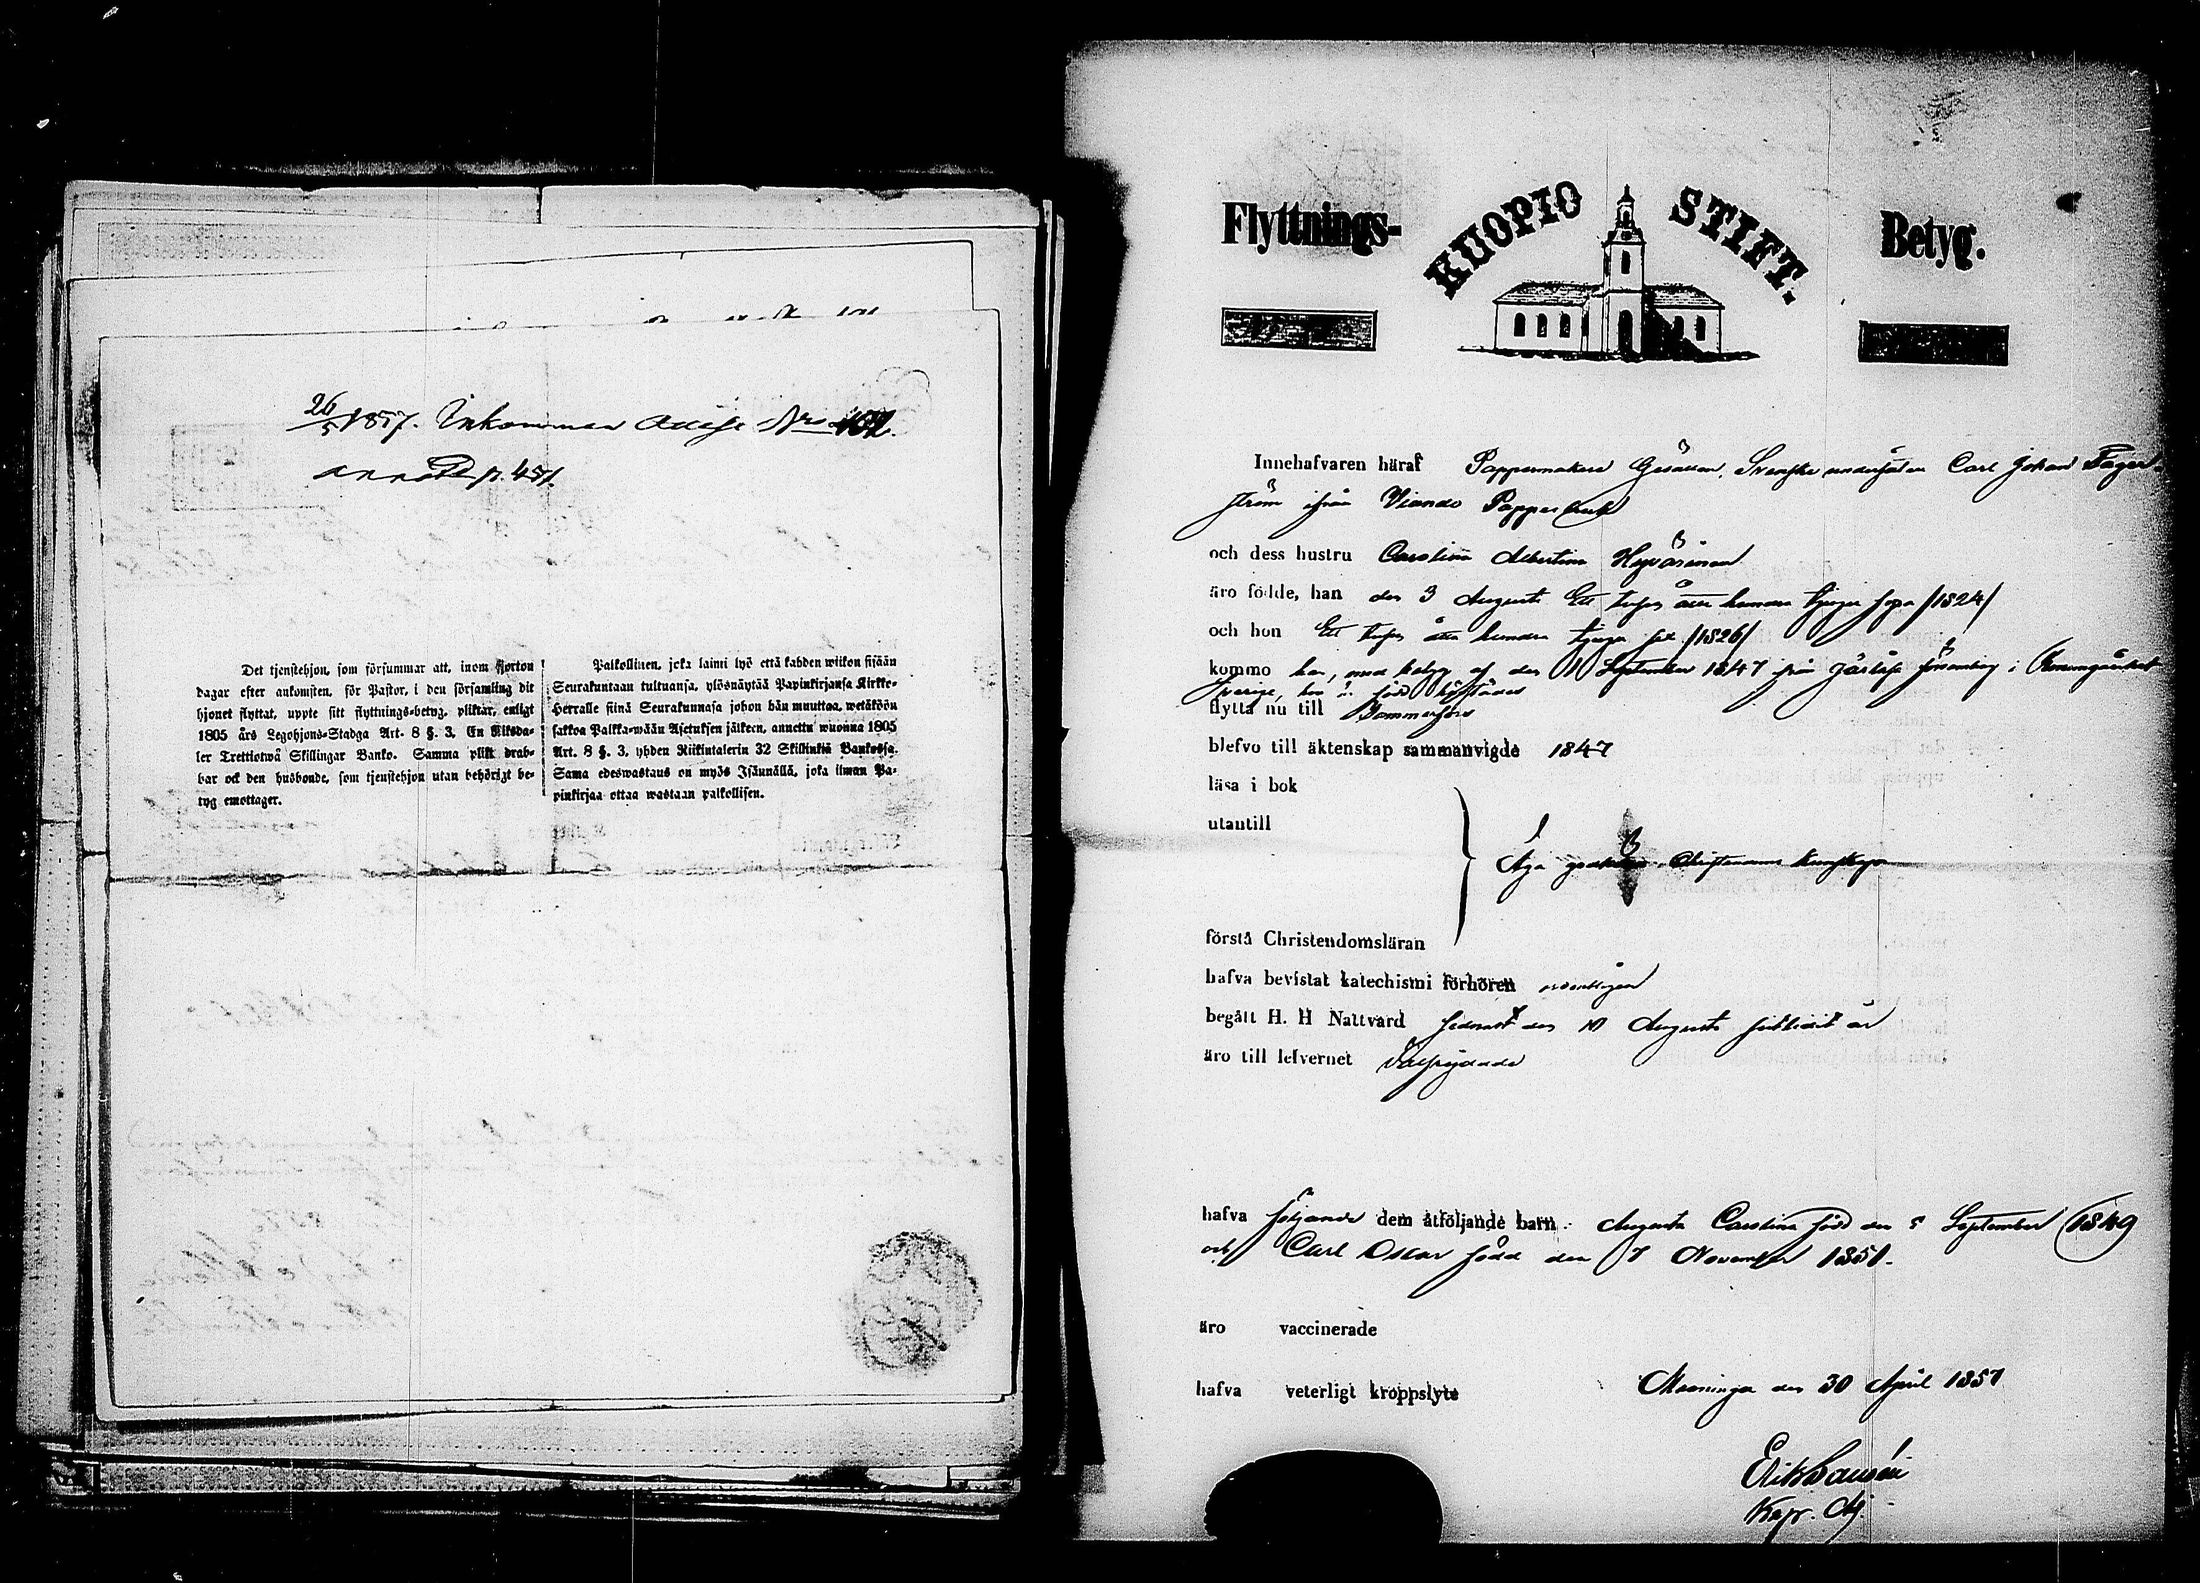 26/5 1857. Inkommen attest Nro 102.
annott. p. 451.
Det tjenstehjon, som försummar att, inom fjorton
dagar efter ankomsten, för Pastor, i den församling dit
hjonet flyttat, uppte sitt flyttnings-betyg, pliktar, enligt
1805 års Legohjons-Stadga Art. 8 §. 3, En Riksda-
ler Trettiotwå Skillingar Banko. Samma plikt drab-
bar ock den husbonde, som tjenstehjon utan behörigt be-
tyg emottager.
Palkollinen, joka laimi lyö että kahden wiikon sisään
Seurakuntaan tultuansa, ylösnäytää Papinkirjansa Kirkko-
Herralle siinä Seurakunnasa johon hän muuttaa, wetäköön
sakkoa Palkka-wään Asetuksen jälkeen, annettu wuonna 1805
Art. 8 §. 3, yhden Riikintalerin 32 Skillinkiä Bankossa.
Sama edeswastaus on myös Isännällä, joka ilman Pa-
pinkirjaa ottaa wastaan palkollisen.
Flyttnings- KUOPIO STIFT. Betyg.
Innehafvaren häraf Pappersmakare Gesällen, Svenske undersåten Carl Johan Fager-
ström ifrån Viando Pappersbruk
och dess hustru Carolina Albertina Hyvärinen
äro födde, han den 3 Augusti Ett tusen åtta hundra tjugu fyra /1824/
och hon Ett tusen åtta hundra tjugu sex /1826/
kommo han, med betyg af den 11 September 1847 från Församling i
Sverige, hon är född härstädes
flytta nu till Tammerfors
blefvo till äktenskap sammanvigde 1847
läsa i bok
utantill
Äga Christendoms kunskaper
förstå Christendomsläran
hafva bevistat katechismi förhören ordentligen
begått H. H Nattvard sednast den 10 Augusti sistlidit år
äro till lefvernet Välfrejdade
hafva följande dem åtföljande barn: Augusta Carolina född den 5 September 1849
och Carl Oscar född den 7 November 1851.
äro vaccinerade
hafva veterligt kroppslyte
Maaninga den 30 April 1857
Erik
Kapp. Adj.